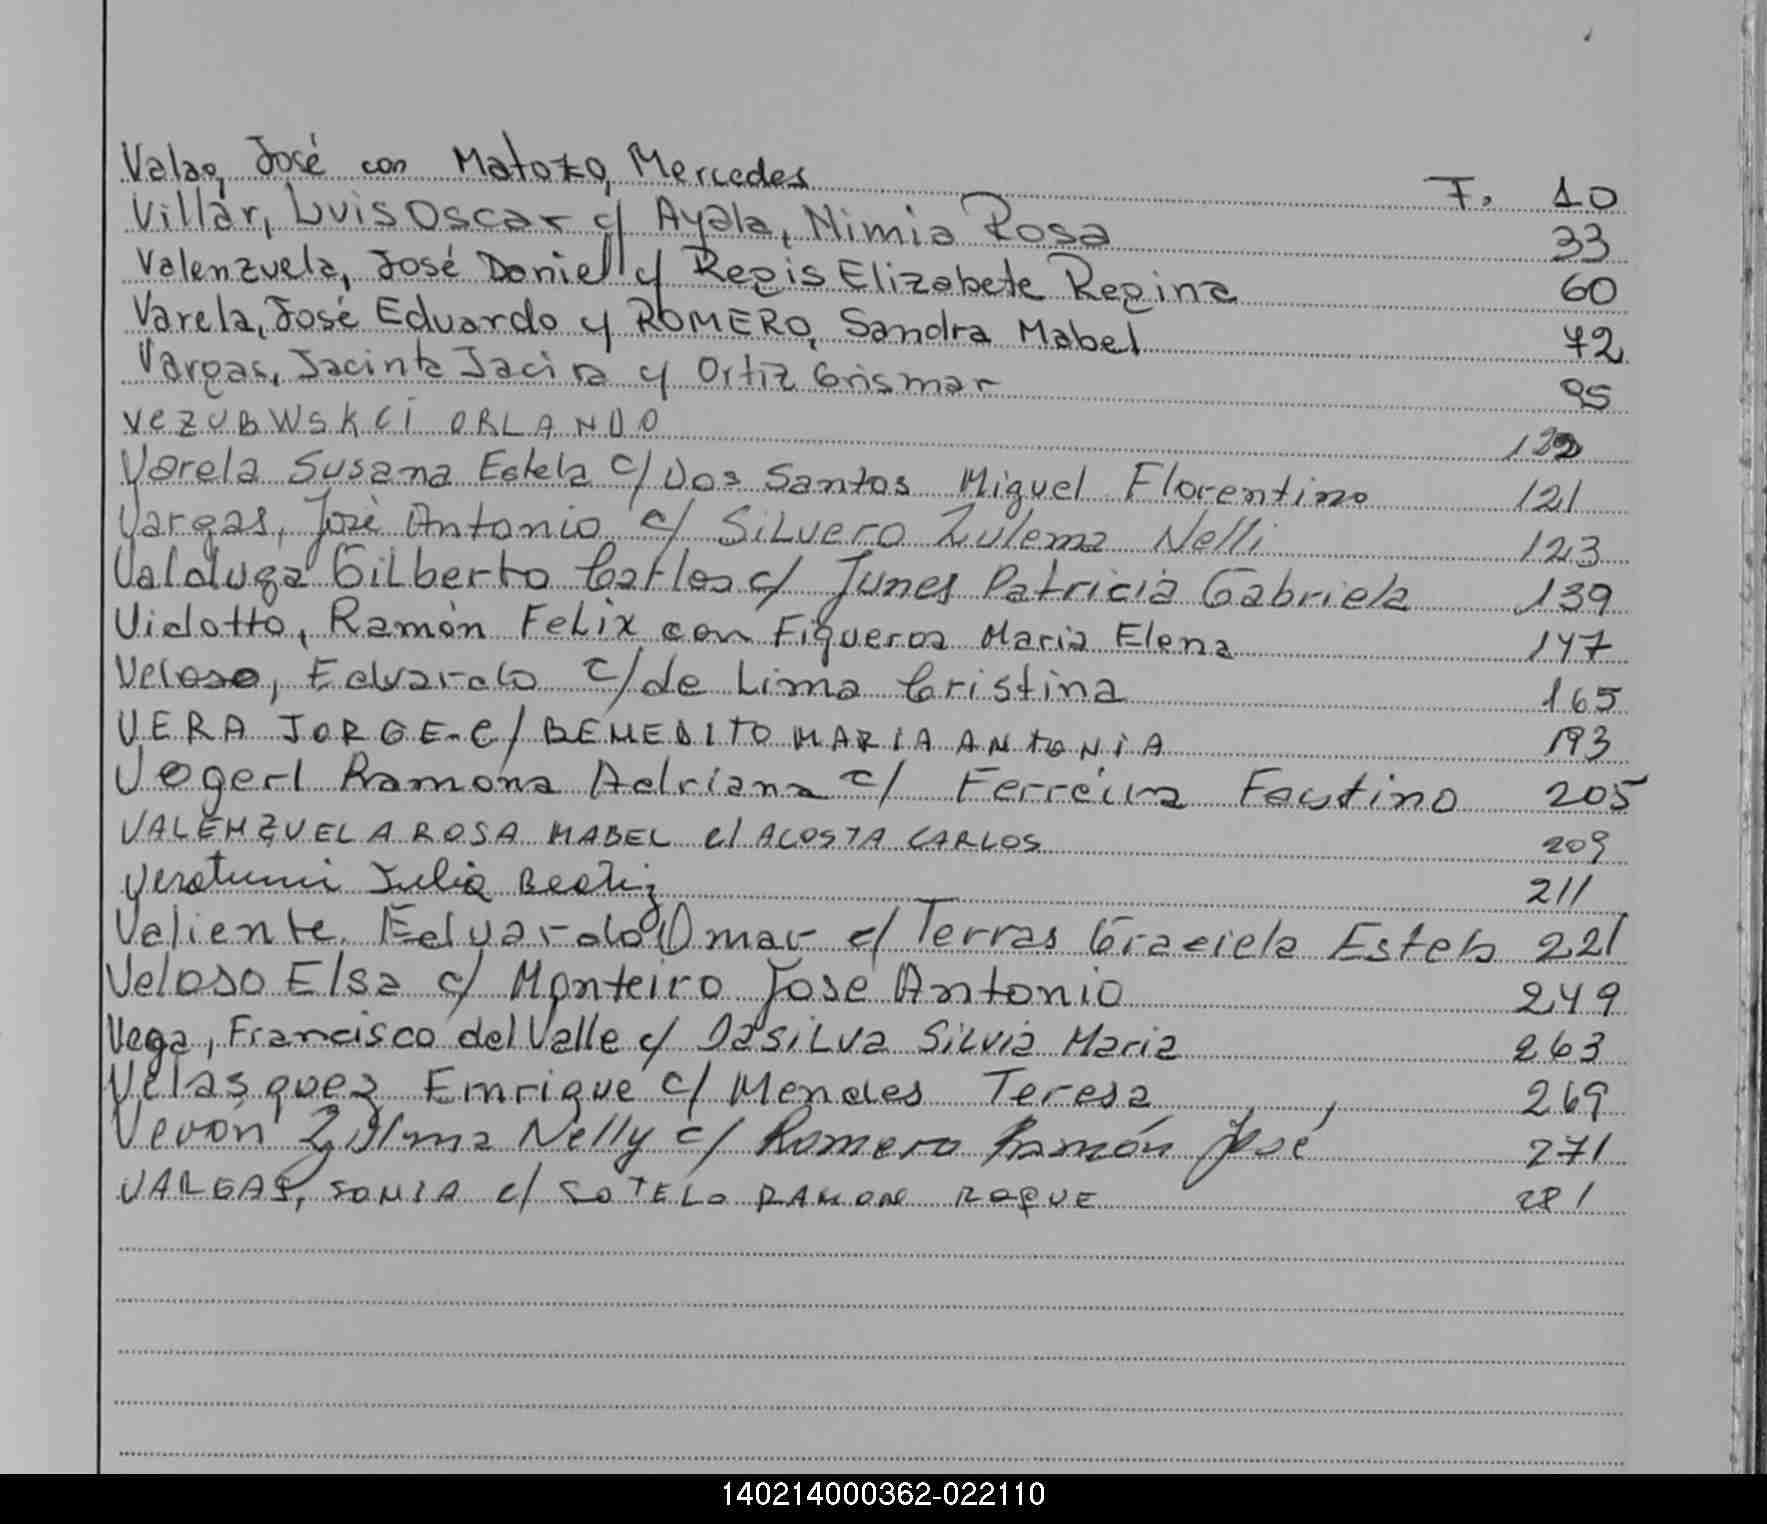 Valao, José con Matozo, Mercedes F. 10
Villar, Luis Oscar c/ Ayala, Nimia Rosa 33
Valenzuela, José Daniel y Regis Elizabete Regina 60
Varela, José Eduardo y ROMERO, Sandra Mabel 72
Vargas, Jacinta Jacira y Ortiz Grismar 95
VEZUBWSKCI ORLANDO
Varela Susana Estela c/ Dos Santos Miguel Florentino 121
Vargas, José Antonio c/ Silvero Zulema Nelli 123
Valduga Gilberto Carlos c/ Junes Patricia Gabriela 139
Vidotto, Ramón Felix con Figueroa Maria Elena 147
Veloso, Eduardo c/ de Lima Cristina 165
VERA JORGE - C/ BENEDITO MARIA ANTONIA 193
Vogerl Ramona Adriana c/ Ferreira Faustino 205
VALENZUELA ROSA MABEL c/ ACOSTA CARLOS 209
Julia Beatriz 211
Valiente Eduardo Omar c/ Terras Graciela Estela 221
Veloso Elsa c/ Monteiro José Antonio 249
Vega, Francisco del Valle c/ Dasilva Silvia Maria 263
Velasquez Emrique c/ Mendes Teresa 269
Verón Zulma Nelly c/ Romero Ramón José 271
VARGAS, SONIA c/ SOTELO RAMON ROQUE 281
140214000362-022110